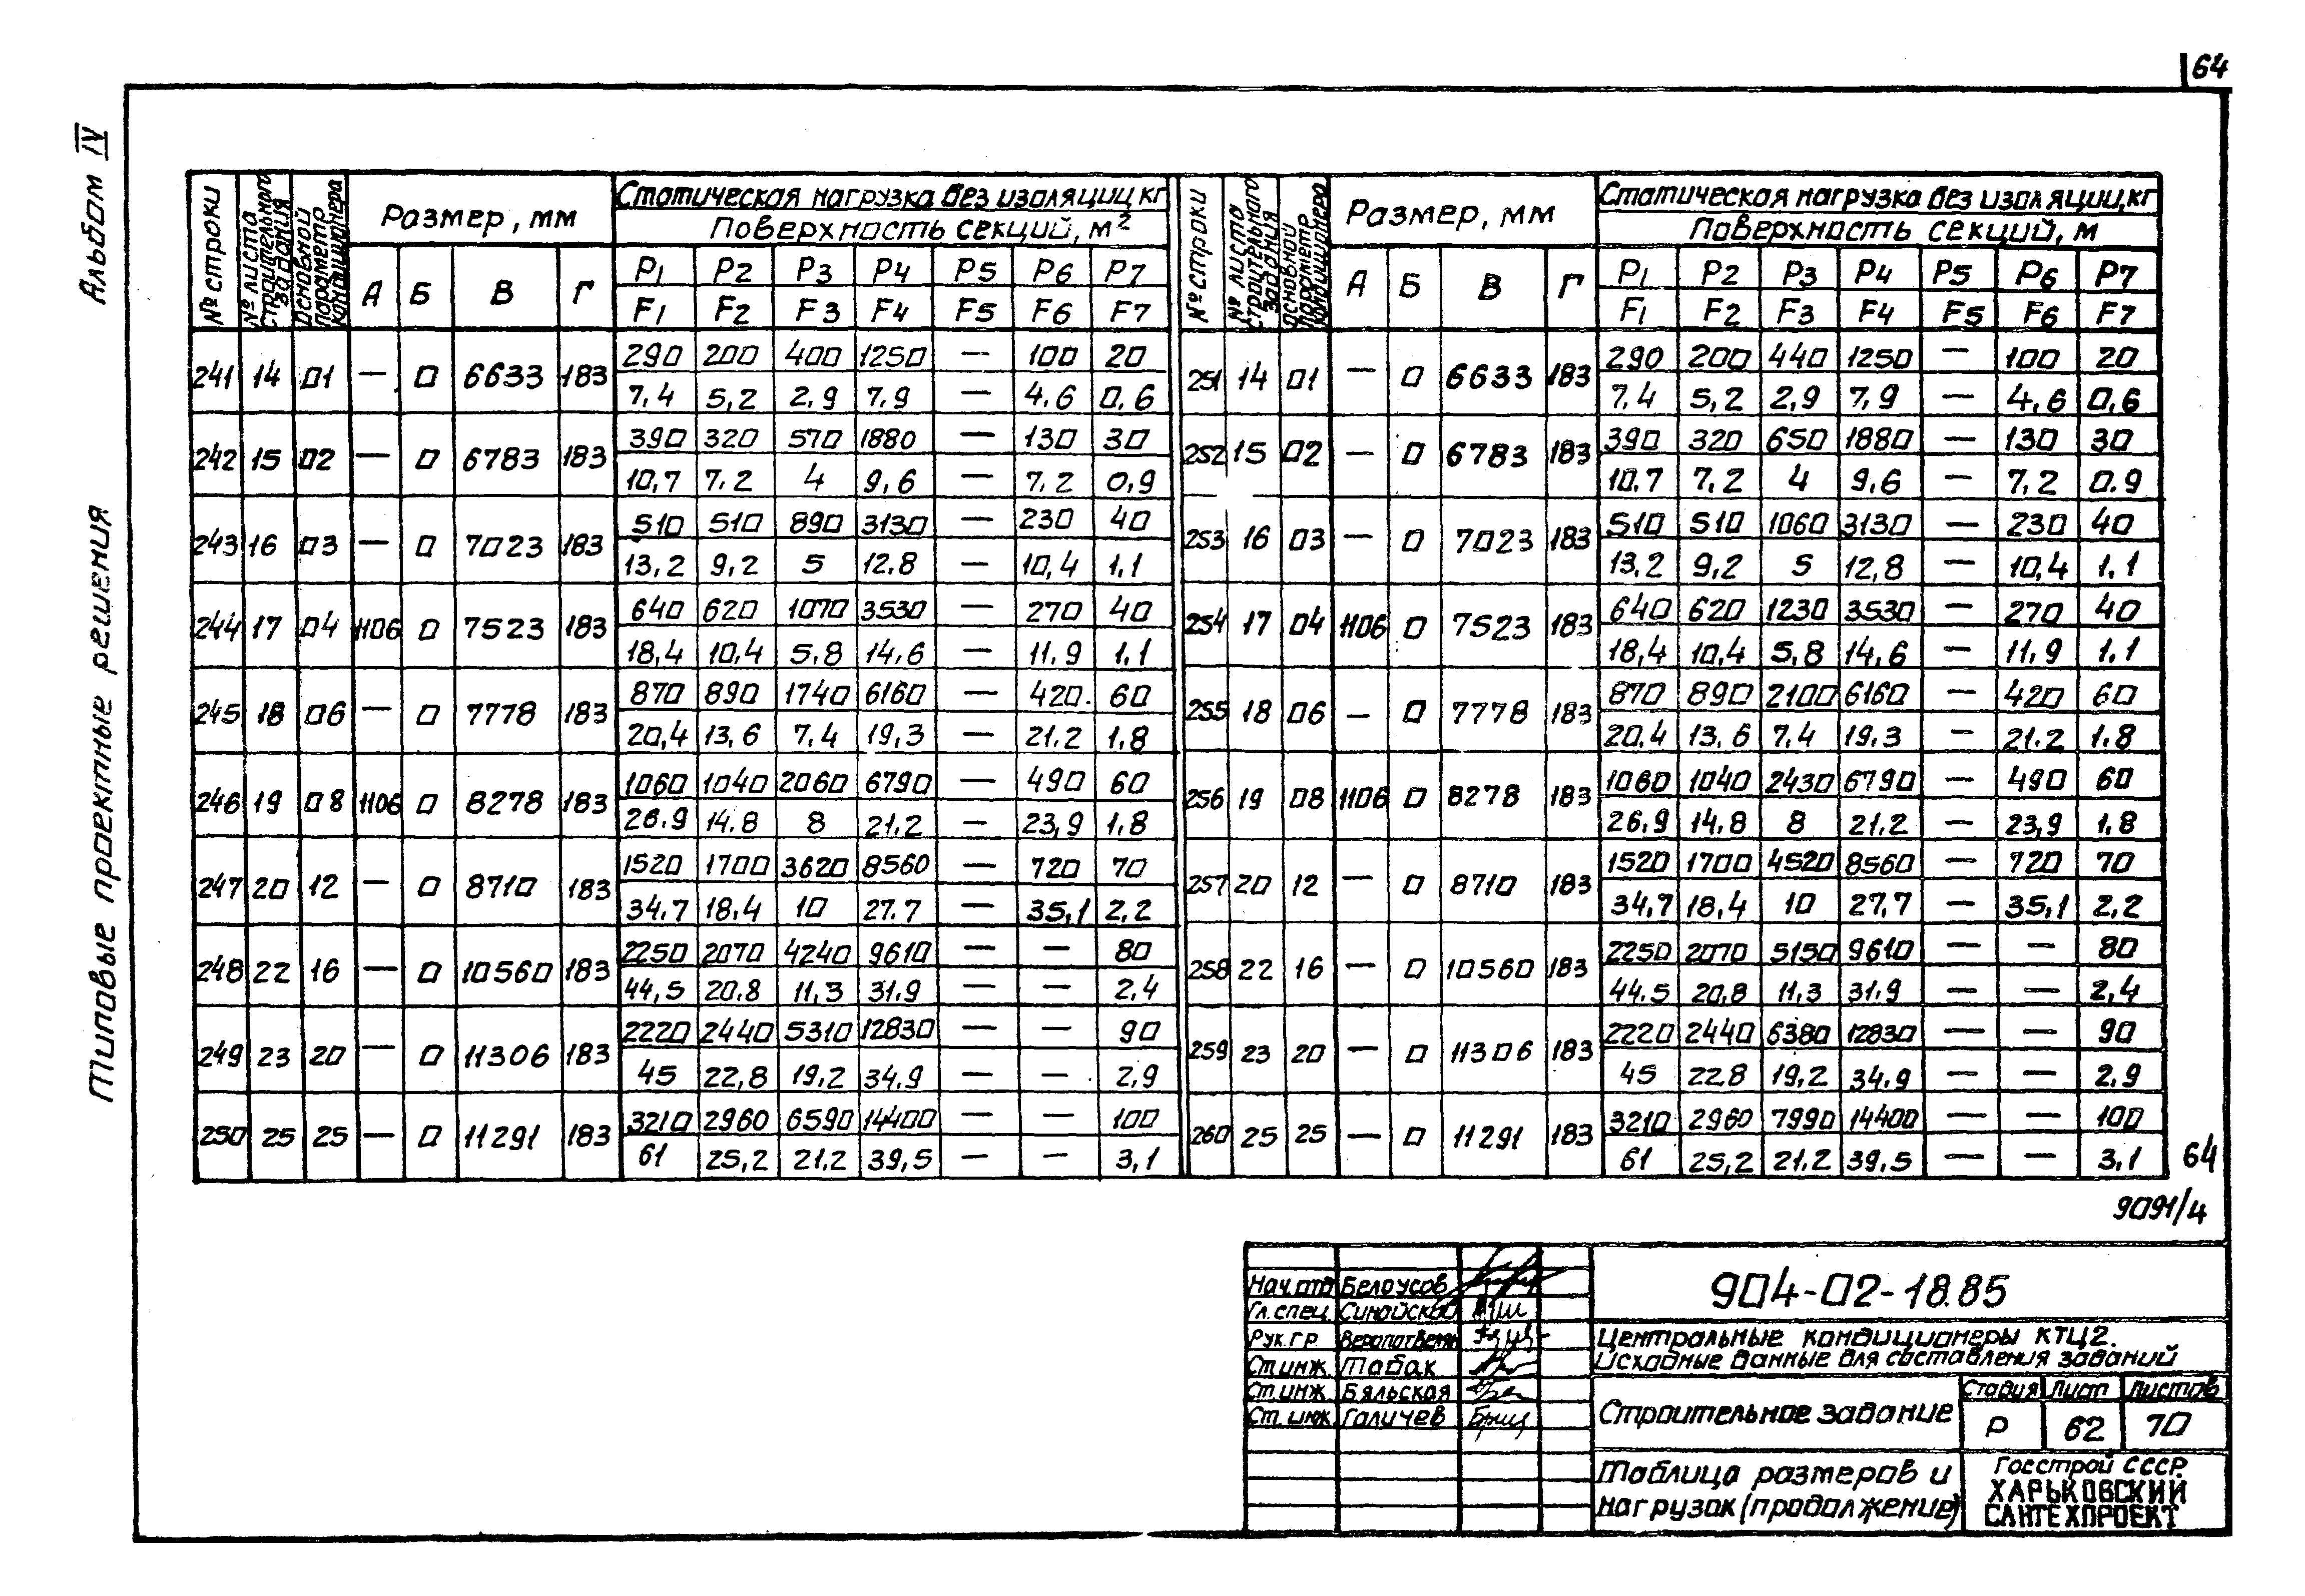 64
Альбом IV
Типовые проектные решения
№ строки | № листа строительного задания | Основной параметр кондиционера | Размер, мм | Статическая нагрузка без изоляции, кг
Поверхность секций, м²
А | Б | В | Г | P1 | P2 | P3 | P4 | P5 | P6 | P7
F1 | F2 | F3 | F4 | F5 | F6 | F7
241 | 14 | 01 | — | 0 | 6633 | 183 | 290 | 200 | 400 | 1250 | — | 100 | 20
7,4 | 5,2 | 2,9 | 7,9 | — | 4,6 | 0,6
242 | 15 | 02 | — | 0 | 6783 | 183 | 390 | 320 | 570 | 1880 | — | 130 | 30
10,7 | 7,2 | 4 | 9,6 | — | 7,2 | 0,9
243 | 16 | 03 | — | 0 | 7023 | 183 | 510 | 510 | 890 | 3130 | — | 230 | 40
13,2 | 9,2 | 5 | 12,8 | — | 10,4 | 1,1
244 | 17 | 04 | 1106 | 0 | 7523 | 183 | 640 | 620 | 1070 | 3530 | — | 270 | 40
18,4 | 10,4 | 5,8 | 14,6 | — | 11,9 | 1,1
245 | 18 | 06 | — | 0 | 7778 | 183 | 870 | 890 | 1740 | 6160 | — | 420 | 60
20,4 | 13,6 | 7,4 | 19,3 | — | 21,2 | 1,8
246 | 19 | 08 | 1106 | 0 | 8278 | 183 | 1060 | 1040 | 2060 | 6790 | — | 490 | 60
26,9 | 14,8 | 8 | 21,2 | — | 23,9 | 1,8
247 | 20 | 12 | — | 0 | 8710 | 183 | 1520 | 1700 | 3620 | 8560 | — | 720 | 70
34,7 | 18,4 | 10 | 27,7 | — | 35,1 | 2,2
248 | 22 | 16 | — | 0 | 10560 | 183 | 2250 | 2070 | 4240 | 9610 | — | — | 80
44,5 | 20,8 | 11,3 | 31,9 | — | — | 2,4
249 | 23 | 20 | — | 0 | 11306 | 183 | 2220 | 2440 | 5310 | 12830 | — | — | 90
45 | 22,8 | 19,2 | 34,9 | — | — | 2,9
250 | 25 | 25 | — | 0 | 11291 | 183 | 3210 | 2960 | 6590 | 14400 | — | — | 100
61 | 25,2 | 21,2 | 39,5 | — | — | 3,1
№ строки | № листа строительного задания | Основной параметр кондиционера | Размер, мм | Статическая нагрузка без изоляции, кг
Поверхность секций, м
А | Б | В | Г | P1 | P2 | P3 | P4 | P5 | P6 | P7
F1 | F2 | F3 | F4 | F5 | F6 | F7
251 | 14 | 01 | — | 0 | 6633 | 183 | 290 | 200 | 440 | 1250 | — | 100 | 20
7,4 | 5,2 | 2,9 | 7,9 | — | 4,6 | 0,6
252 | 15 | 02 | — | 0 | 6783 | 183 | 390 | 320 | 650 | 1880 | — | 130 | 30
10,7 | 7,2 | 4 | 9,6 | — | 7,2 | 0.9
253 | 16 | 03 | — | 0 | 7023 | 183 | 510 | 510 | 1060 | 3130 | — | 230 | 40
13,2 | 9,2 | 5 | 12,8 | — | 10,4 | 1,1
254 | 17 | 04 | 1106 | 0 | 7523 | 183 | 640 | 620 | 1230 | 3530 | — | 270 | 40
18,4 | 10,4 | 5,8 | 14,6 | — | 11,9 | 1,1
255 | 18 | 06 | — | 0 | 7778 | 183 | 870 | 890 | 2100 | 6160 | — | 420 | 60
20,4 | 13,6 | 7,4 | 19,3 | — | 21,2 | 1,8
256 | 19 | 08 | 1106 | 0 | 8278 | 183 | 1060 | 1040 | 2430 | 6790 | — | 490 | 60
26,9 | 14,8 | 8 | 21,2 | — | 23,9 | 1,8
257 | 20 | 12 | — | 0 | 8710 | 183 | 1520 | 1700 | 4520 | 8560 | — | 720 | 70
34,7 | 18,4 | 10 | 27,7 | — | 35,1 | 2,2
258 | 22 | 16 | — | 0 | 10560 | 183 | 2250 | 2070 | 5150 | 9610 | — | — | 80
44,5 | 20,8 | 11,3 | 31,9 | — | — | 2,4
259 | 23 | 20 | — | 0 | 11306 | 183 | 2220 | 2440 | 6380 | 12830 | — | — | 90
45 | 22,8 | 19,2 | 34,9 | — | — | 2,9
260 | 25 | 25 | — | 0 | 11291 | 183 | 3210 | 2960 | 7990 | 14400 | — | — | 100
61 | 25,2 | 21,2 | 39,5 | — | — | 3,1
64
9091/4
Нач.отд Белоусов
Гл.спец. Синайский
Рук.гр.
Ст.инж. Табак
Ст.инж. Бяльская
Ст.инж. Галичев
904-02-18.85
Центральные кондиционеры КТЦ2.
Исходные данные для составления заданий
Строительное задание
Стадия | Лист | Листов
Р | 62 | 70
Таблица размеров и
нагрузок (продолжение)
Госстрой СССР
ХАРЬКОВСКИЙ
САНТЕХПРОЕКТ